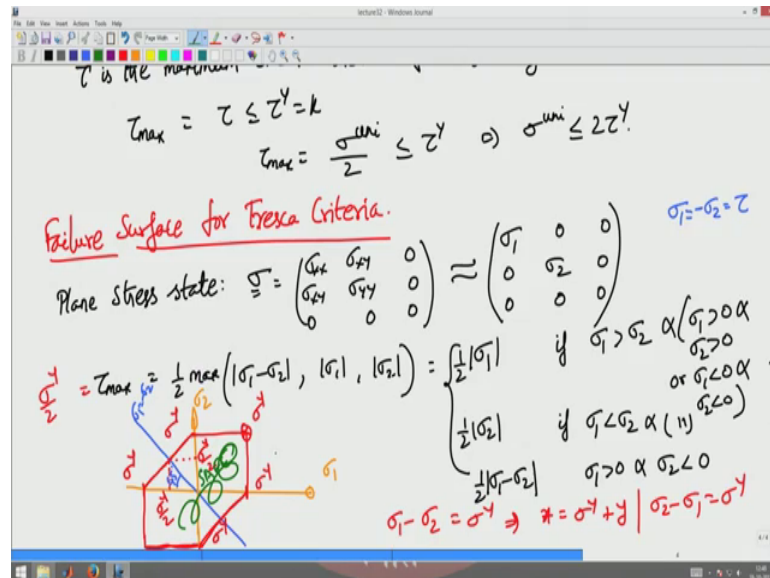 lecture32 - Windows Journal
File Edit View Insert Actions Tools Help
Page Width
B I
τ is the maximum
τmax = τ ≤ τ^Y = k
τmax = σ^uni / 2 ≤ τ^Y ⇒ σ^uni ≤ 2τ^Y.
Failure Surface for Tresca Criteria.
σ1 = -σ2 = τ
Plane Stress state: σ = (σxx σxy 0
σxy σyy 0
0 0 0) ≈ (σ1 0 0
0 σ2 0
0 0 0)
σ^Y/2 = τmax = 1/2 max(|σ1-σ2|, |σ1|, |σ2|) = { 1/2|σ1| if σ1 > σ2 & (σ1>0 &
σ2>0
or σ1<0 &
σ2<0)
1/2|σ2| if σ1 < σ2 & (")
1/2|σ1-σ2| σ1>0 & σ2<0
σ2
σ^Y σ^Y
σ^Y σ^Y/2
σ^Y/2 σ^Y σ1
σ^Y
σ1 - σ2 = σ^Y ⇒ x = σ^Y + y | σ2 - σ1 = σ^Y
4/4